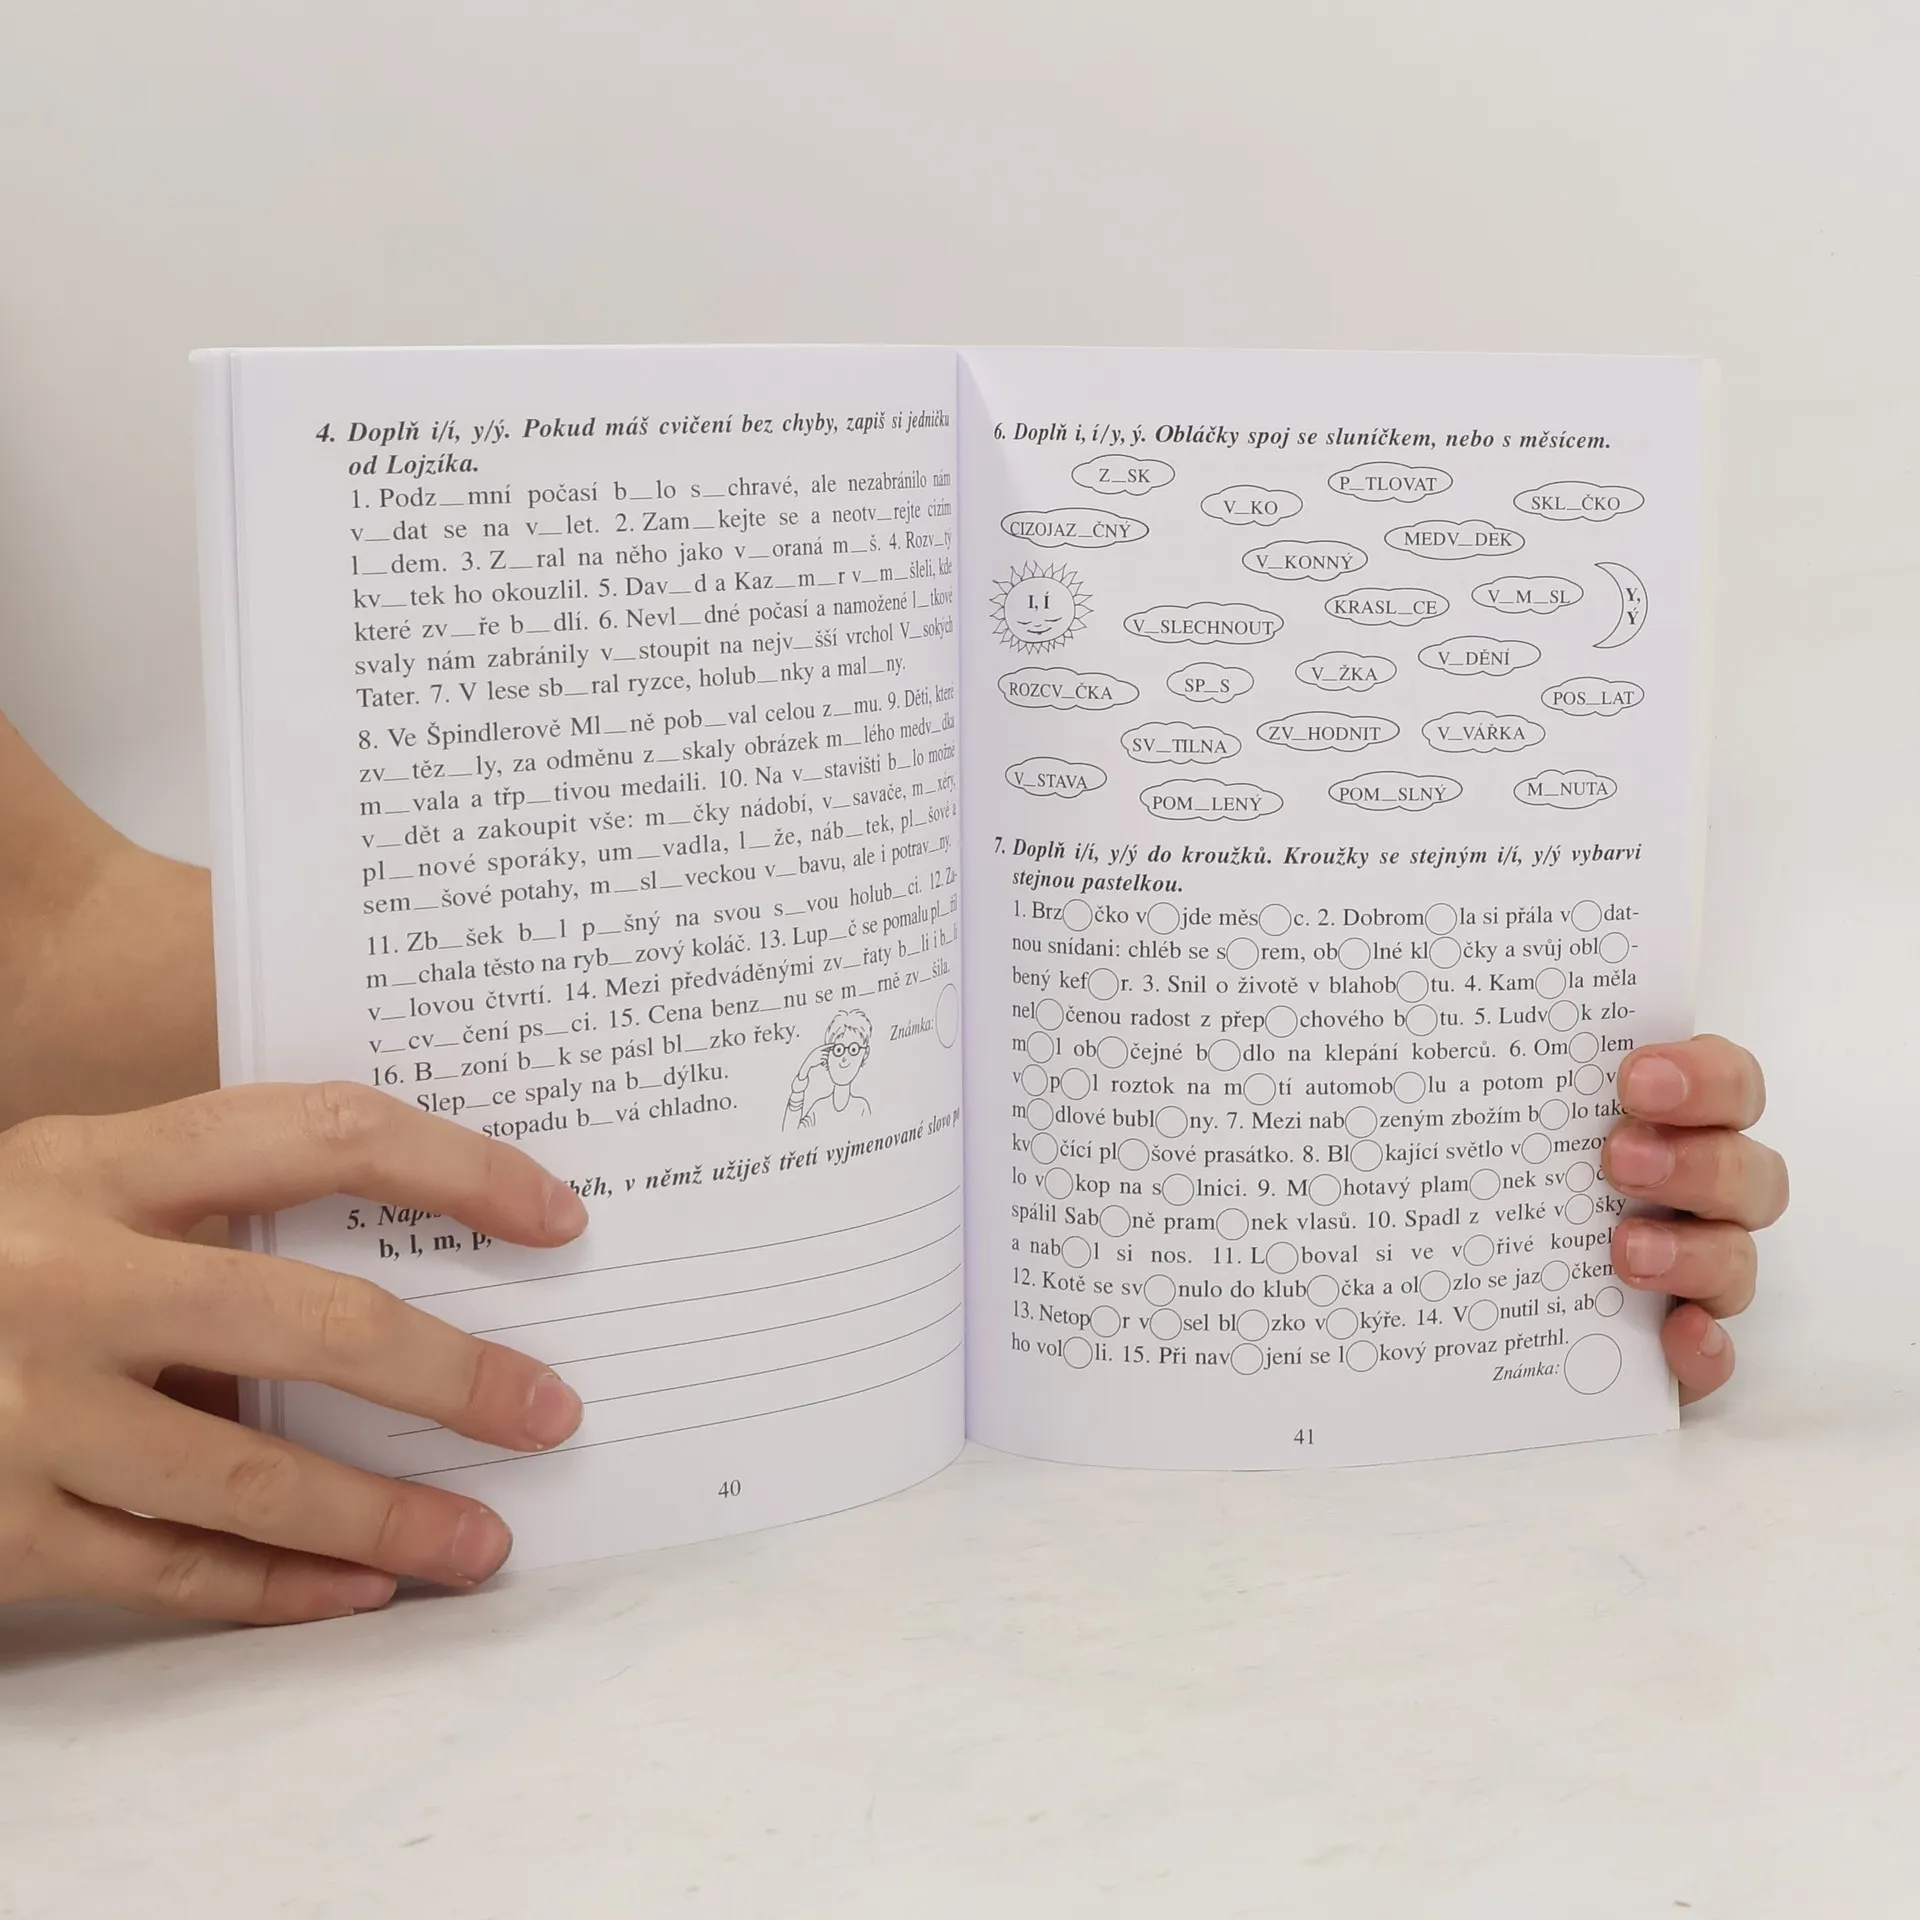 4. Doplň i/í, y/ý. Pokud máš cvičení bez chyby, zapiš si jedničku
od Lojzíka.
1. Podz__mní počasí b__lo s__chravé, ale nezabránilo nám
v__dat se na v__let. 2. Zam__kejte se a neotv__rejte cizím
l__dem. 3. Z__ral na něho jako v__oraná m__š. 4. Rozv__tý
kv__tek ho okouzlil. 5. Dav__d a Kaz__m__r v__m__šleli, kde
které zv__ře b__dlí. 6. Nevl__dné počasí a namožené l__tkové
svaly nám zabránily v__stoupit na nejv__šší vrchol V__sokých
Tater. 7. V lese sb__ral ryzce, holub__nky a mal__ny.
8. Ve Špindlerově Ml__ně pob__val celou z__mu. 9. Děti, které
zv__těz__ly, za odměnu z__skaly obrázek m__lého medv__dka
m__vala a třp__tivou medaili. 10. Na v__stavišti b__lo možné
v__dět a zakoupit vše: m__čky nádobí, v__savače, m__xéry,
pl__nové sporáky, um__vadla, l__že, náb__tek, pl__šové a
sem__šové potahy, m__sl__veckou v__bavu, ale i potrav__ny.
11. Zb__šek b__l p__šný na svou s__vou holub__ci. 12. Za-
m__chala těsto na ryb__zový koláč. 13. Lup__č se pomalu pl__žil
v__lovou čtvrtí. 14. Mezi předváděnými zv__řaty b__li i b__lí
v__cv__čení ps__ci. 15. Cena benz__nu se m__rně zv__šila.
16. B__zoní b__k se pásl bl__zko řeky.
Slep__ce spaly na b__dýlku.
stopadu b__vá chladno.
Známka:
5. běh, v němž užiješ třetí vyjmenované slovo po
b, l, m, p,
40
6. Doplň i, í/y, ý. Obláčky spoj se sluníčkem, nebo s měsícem.
Z__SK
P__TLOVAT
V__KO
SKL__ČKO
CIZOJAZ__ČNÝ
MEDV__DEK
V__KONNÝ
I, Í
KRASL__CE
V__M__SL
Y,
Ý
V__SLECHNOUT
V__DĚNÍ
ROZCV__ČKA
SP__S
V__ŽKA
POS__LAT
SV__TILNA
ZV__HODNIT
V__VÁŘKA
V__STAVA
POM__LENÝ
POM__SLNÝ
M__NUTA
7. Doplň i/í, y/ý do kroužků. Kroužky se stejným i/í, y/ý vybarvi
stejnou pastelkou.
1. Brz○čko v○jde měs○c. 2. Dobrom○la si přála v○dat-
nou snídani: chléb se s○rem, ob○lné kl○čky a svůj obl○-
bený kef○r. 3. Snil o životě v blahob○tu. 4. Kam○la měla
nel○čenou radost z přep○chového b○tu. 5. Ludv○k zlo-
m○l ob○čejné b○dlo na klepání koberců. 6. Om○lem
v○p○l roztok na m○tí automob○lu a potom pl○v
m○dlové bubl○ny. 7. Mezi nab○zeným zbožím b○lo také
kv○čící pl○šové prasátko. 8. Bl○kající světlo v○mezo
lo v○kop na s○lnici. 9. M○hotavý plam○nek sv○č
spálil Sab○ně pram○nek vlasů. 10. Spadl z velké v○šky
a nab○l si nos. 11. L○boval si ve v○řivé koupel
12. Kotě se sv○nulo do klub○čka a ol○zlo se jaz○čkem
13. Netop○r v○sel bl○zko v○kýře. 14. V○nutil si, ab○
ho vol○li. 15. Při nav○jení se l○kový provaz přetrhl.
Známka:
41